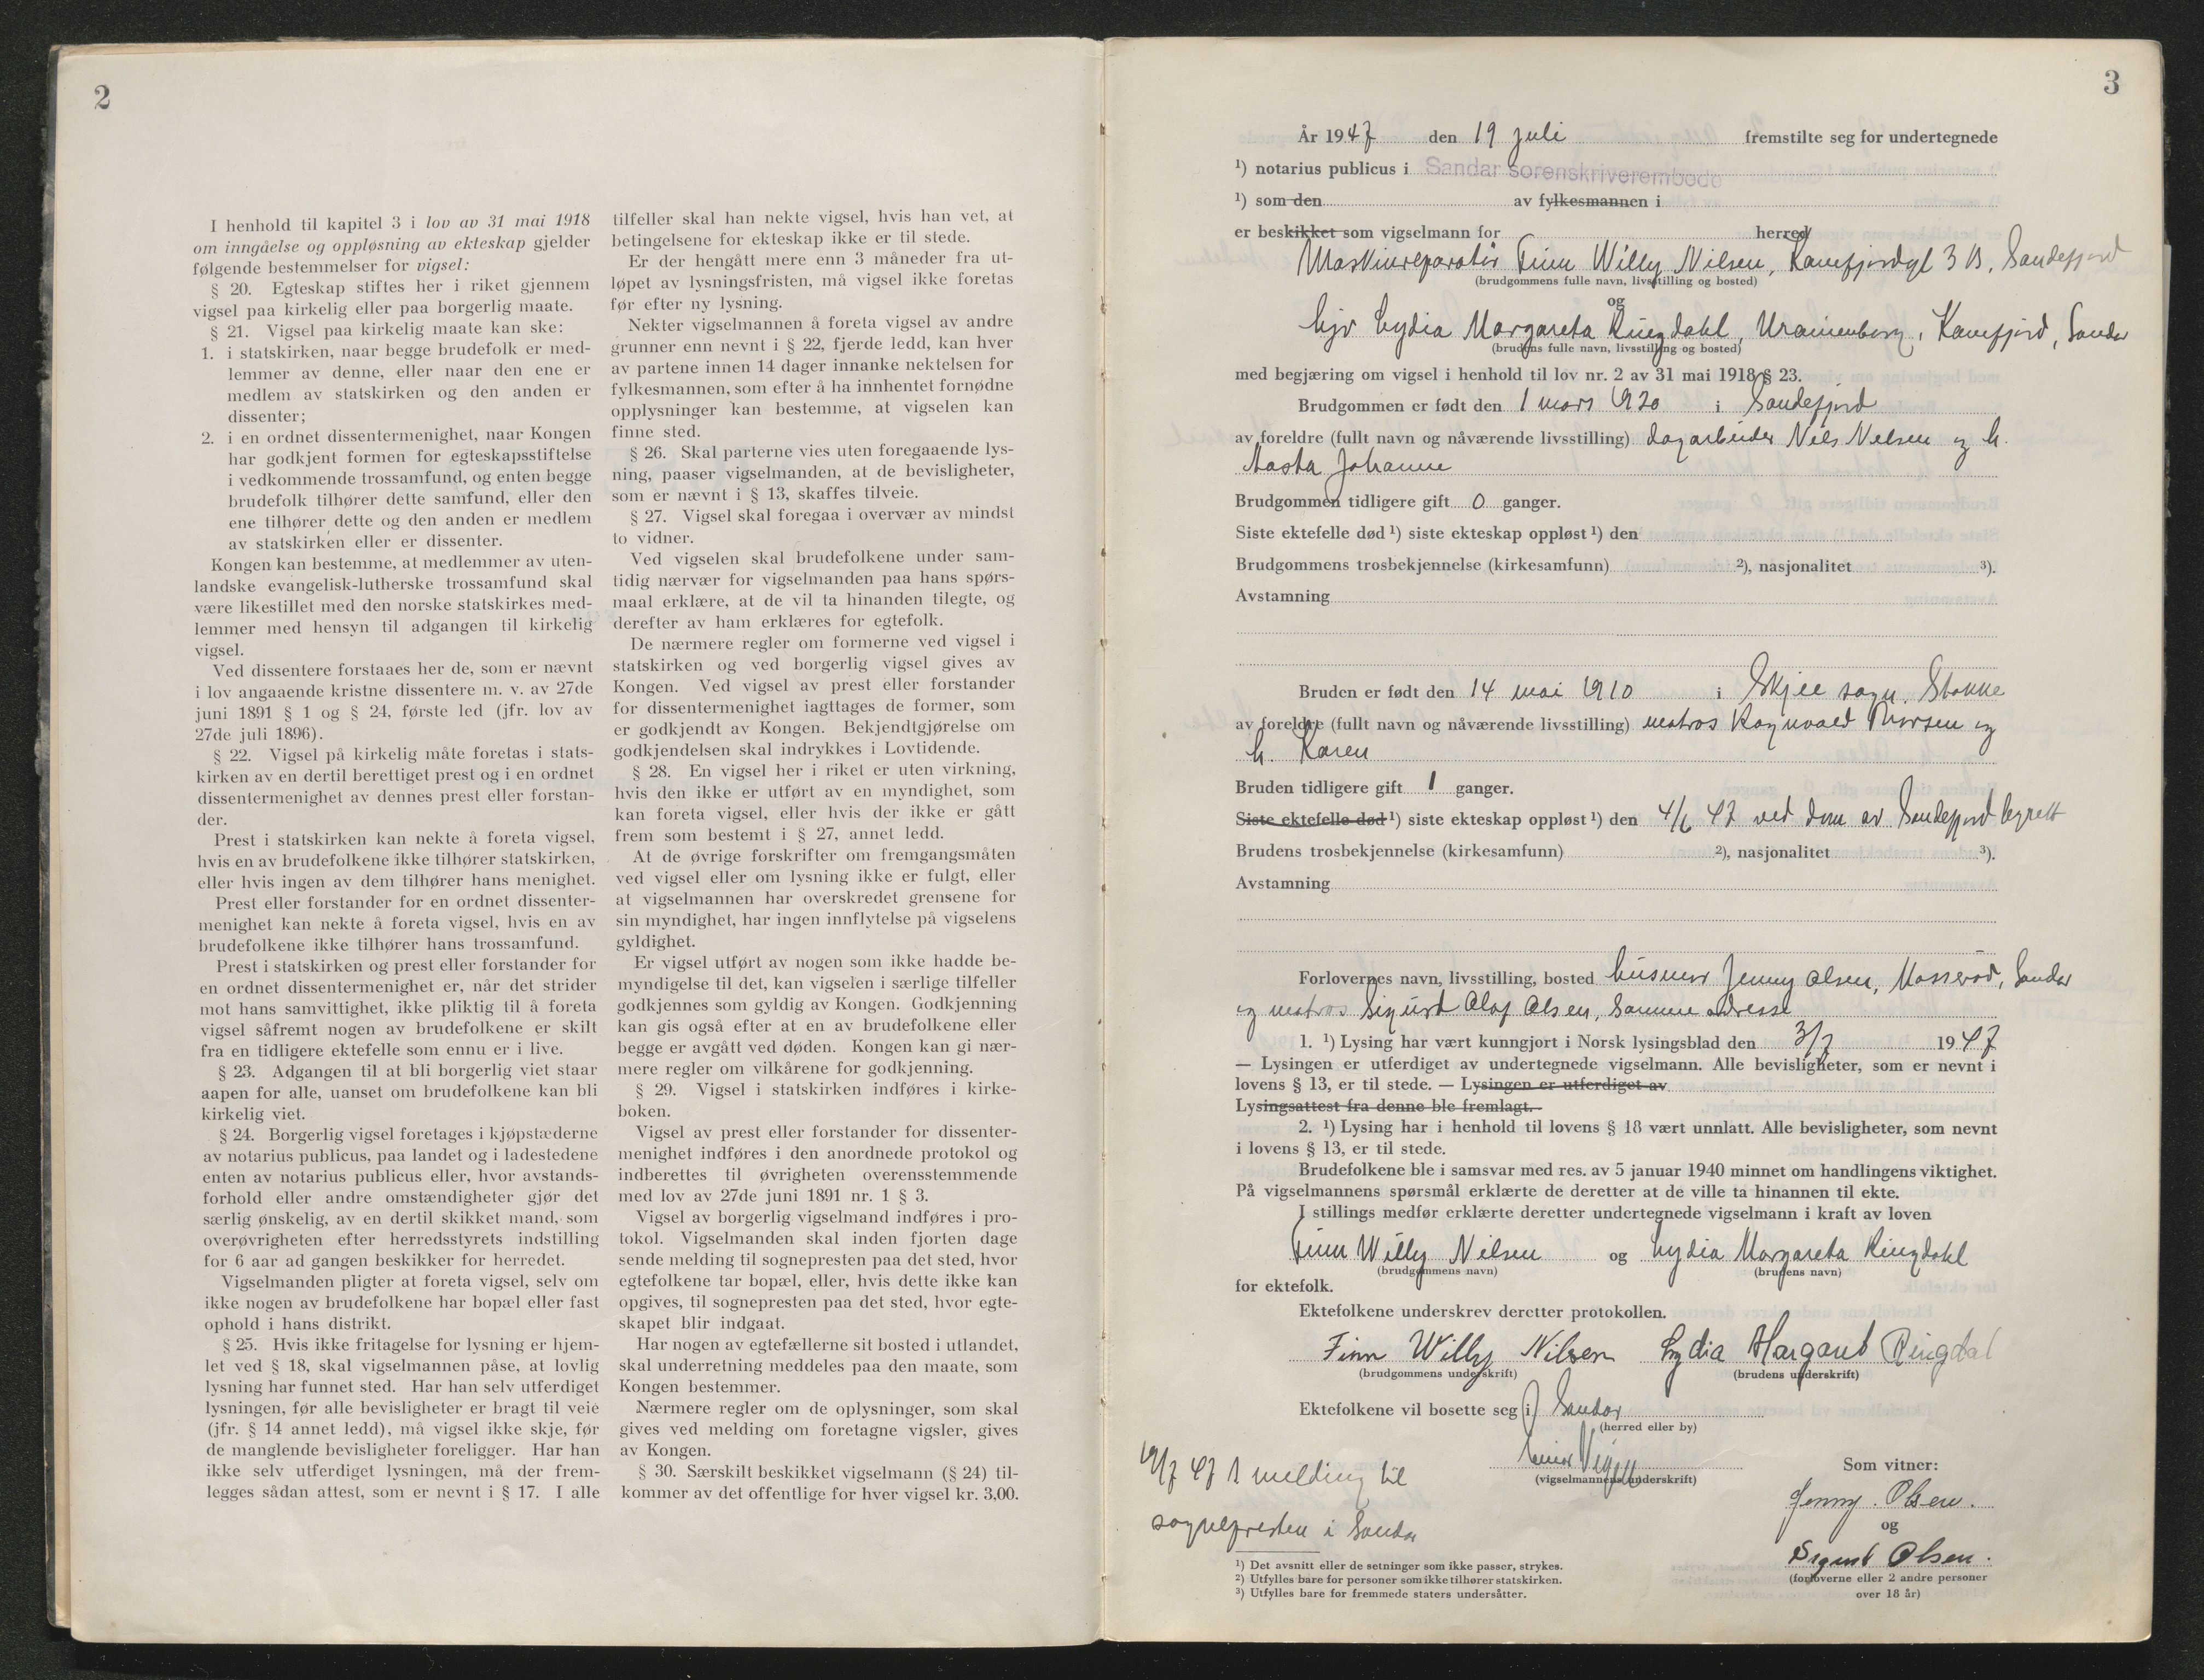 2
I henhold til kapitel 3 i lov av 31 mai 1918
om inngåelse og oppløsning av ekteskap gjelder
følgende bestemmelser for vigsel:
§ 20. Egteskap stiftes her i riket gjennem
vigsel paa kirkelig eller paa borgerlig maate.
§ 21. Vigsel paa kirkelig maate kan ske:
1. i statskirken, naar begge brudefolk er med-
lemmer av denne, eller naar den ene er
medlem av statskirken og den anden er
dissenter;
2. i en ordnet dissentermenighet, naar Kongen
har godkjent formen for egteskapsstiftelse
i vedkommende trossamfund, og enten begge
brudefolk tilhører dette samfund, eller den
ene tilhører dette og den anden er medlem
av statskirken eller er dissenter.
Kongen kan bestemme, at medlemmer av uten-
landske evangelisk-lutherske trossamfund skal
være likestillet med den norske statskirkes med-
lemmer med hensyn til adgangen til kirkelig
vigsel.
Ved dissentere forstaaes her de, som er nævnt
i lov angaaende kristne dissentere m. v. av 27de
juni 1891 § 1 og § 24, første led (jfr. lov av
27de juli 1896).
§ 22. Vigsel på kirkelig måte foretas i stats-
kirken av en dertil berettiget prest og i en ordnet
dissentermenighet av dennes prest eller forstan-
der.
Prest i statskirken kan nekte å foreta vigsel,
hvis en av brudefolkene ikke tilhører statskirken,
eller hvis ingen av dem tilhører hans menighet.
Prest eller forstander for en ordnet dissenter-
menighet kan nekte å foreta vigsel, hvis en av
brudefolkene ikke tilhører hans trossamfund.
Prest i statskirken og prest eller forstander for
en ordnet dissentermenighet er, når det strider
mot hans samvittighet, ikke pliktig til å foreta
vigsel såfremt nogen av brudefolkene er skilt
fra en tidligere ektefelle som ennu er i live.
§ 23. Adgangen til at bli borgerlig viet staar
aapen for alle, uanset om brudefolkene kan bli
kirkelig viet.
§ 24. Borgerlig vigsel foretages i kjøpstæderne
av notarius publicus, paa landet og i ladestedene
enten av notarius publicus eller, hvor avstands-
forhold eller andre omstændigheter gjør det
særlig ønskelig, av en dertil skikket mand, som
overøvrigheten efter herredsstyrets indstilling
for 6 aar ad gangen beskikker for herredet.
Vigselmanden pligter at foreta vigsel, selv om
ikke nogen av brudefolkene har bopæl eller fast
ophold i hans distrikt.
§ 25. Hvis ikke fritagelse for lysning er hjem-
let ved § 18, skal vigselmannen påse, at lovlig
lysning har funnet sted. Har han selv utferdiget
lysningen, før alle bevisligheter er bragt til veie
(jfr. § 14 annet ledd), må vigsel ikke skje, før
de manglende bevisligheter foreligger. Har han
ikke selv utferdiget lysningen, må der frem-
legges sådan attest, som er nevnt i § 17. I alle
tilfeller skal han nekte vigsel, hvis han vet, at
betingelsene for ekteskap ikke er til stede.
Er der hengått mere enn 3 måneder fra ut-
løpet av lysningsfristen, må vigsel ikke foretas
før efter ny lysning.
Nekter vigselmannen å foreta vigsel av andre
grunner enn nevnt i § 22, fjerde ledd, kan hver
av partene innen 14 dager innanke nektelsen for
fylkesmannen, som efter å ha innhentet fornødne
opplysninger kan bestemme, at vigselen kan
finne sted.
§ 26. Skal parterne vies uten foregaaende lys-
ning, paaser vigselmanden, at de bevisligheter,
som er nævnt i § 13, skaffes tilveie.
§ 27. Vigsel skal foregaa i overvær av mindst
to vidner.
Ved vigselen skal brudefolkene under sam-
tidig nærvær for vigselmanden paa hans spørs-
maal erklære, at de vil ta hinanden tilegte, og
derefter av ham erklæres for egtefolk.
De nærmere regler om formerne ved vigsel i
statskirken og ved borgerlig vigsel gives av
Kongen. Ved vigsel av prest eller forstander
for dissentermenighet iagttages de former, som
er godkjendt av Kongen. Bekjendtgjørelse om
godkjendelsen skal indrykkes i Lovtidende.
§ 28. En vigsel her i riket er uten virkning,
hvis den ikke er utført av en myndighet, som
kan foreta vigsel, eller hvis der ikke er gått
frem som bestemt i § 27, annet ledd.
At de øvrige forskrifter om fremgangsmåten
ved vigsel eller om lysning ikke er fulgt, eller
at vigselmannen har overskredet grensene for
sin myndighet, har ingen innflytelse på vigselens
gyldighet.
Er vigsel utført av nogen som ikke hadde be-
myndigelse til det, kan vigselen i særlige tilfeller
godkjennes som gyldig av Kongen. Godkjenning
kan gis også efter at en av brudefolkene eller
begge er avgått ved døden. Kongen kan gi nær-
mere regler om vilkårene for godkjenning.
§ 29. Vigsel i statskirken indføres i kirke-
boken.
Vigsel av prest eller forstander for dissenter-
menighet indføres i den anordnede protokol og
indberettes til øvrigheten overensstemmende
med lov av 27de juni 1891 nr. 1 § 3.
Vigsel av borgerlig vigselmand indføres i pro-
tokol. Vigselmanden skal inden fjorten dage
sende melding til sognepresten paa det sted, hvor
egtefolkene tar bopæl, eller, hvis dette ikke kan
opgives, til sognepresten paa det sted, hvor egte-
skapet blir indgaat.
Har nogen av egtefællerne sit bosted i utlandet,
skal underretning meddeles paa den maate, som
Kongen bestemmer.
Nærmere regler om de oplysninger, som skal
gives ved melding om foretagne vigsler, gives
av Kongen.
§ 30. Særskilt beskikket vigselmann (§ 24) til-
kommer av det offentlige for hver vigsel kr. 3,00.
3
År 1947 den 19 juli fremstilte seg for undertegnede
¹) notarius publicus i Sandar sorenskriverembode
¹) som den av fylkesmannen i
er beskikket som vigselmann for herred
Maskinreparatør Finn Willy Nilsen, Kamfjordgt 3 B, Sandefjord
(brudgommens fulle navn, livsstilling og bosted)
og
hjv Lydia Margareta Ringdahl, Uranienborg, Kamfjord, Sandar
(brudens fulle navn, livsstilling og bosted)
med begjæring om vigsel i henhold til lov nr. 2 av 31 mai 1918 § 23.
Brudgommen er født den 1 mars 1920 i Sandefjord
av foreldre (fullt navn og nåværende livsstilling) dagarbeider Nils Nelsen og h.
Aasta Johanne
Brudgommen tidligere gift 0 ganger.
Siste ektefelle død ¹) siste ekteskap oppløst ¹) den
Brudgommens trosbekjennelse (kirkesamfunn) ²), nasjonalitet ³).
Avstamning
Bruden er født den 14 mai 1910 i Skjee sogn, Stokke
av foreldre (fullt navn og nåværende livsstilling) matros Ragnvald Thorsen og
h. Karen
Bruden tidligere gift 1 ganger.
Siste ektefelle død ¹) siste ekteskap oppløst ¹) den 4/6 47 ved dom av Sandefjord byrett
Brudens trosbekjennelse (kirkesamfunn) ²), nasjonalitet ³).
Avstamning
Forlovernes navn, livsstilling, bosted husmor Jenny Olsen, Mosserød, Sandar
og matros Sigurd Olaf Olsen, samme adresse
1. ¹) Lysing har vært kunngjort i Norsk lysingsblad den 3/7 1947
— Lysingen er utferdiget av undertegnede vigselmann. Alle bevisligheter, som er nevnt i
lovens § 13, er til stede. — Lysingen er utferdiget av
Lysingsattest fra denne ble fremlagt. -
2. ¹) Lysing har i henhold til lovens § 18 vært unnlatt. Alle bevisligheter, som nevnt
i lovens § 13, er til stede.
Brudefolkene ble i samsvar med res. av 5 januar 1940 minnet om handlingens viktighet.
På vigselmannens spørsmål erklærte de deretter at de ville ta hinannen til ekte.
I stillings medfør erklærte deretter undertegnede vigselmann i kraft av loven
Finn Willy Nilsen og Lydia Margareta Ringdahl
(brudgommens navn) (brudens navn)
for ektefolk.
Ektefolkene underskrev deretter protokollen.
Finn Willy Nilsen Lydia Margaret Ringdal
(brudgommens underskrift) (brudens underskrift)
Ektefolkene vil bosette seg i Sandar
(herred eller by)
19/7 47 melding til
sognepresten i Sandar
(vigselmannens underskrift)
Som vitner:
Jenny Olsen.
og
Sigurd Olsen.
(forloverne eller 2 andre personer
over 18 år)
¹) Det avsnitt eller de setninger som ikke passer, strykes.
²) Utfylles bare for personer som ikke tilhører statskirken.
³) Utfylles bare for fremmede staters undersåtter.